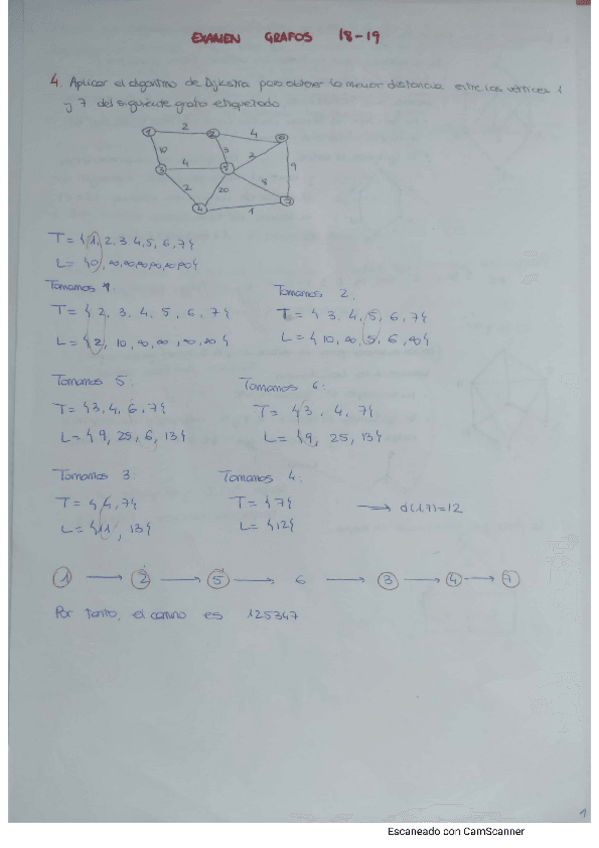 EXAMEN GRAFOS 18-19
4. Aplicar el algoritmo de Dijkstra para obtener la menor distancia entre los vértices 1
y 7 del siguiente grafo etiquetado
1 2 2 4 6
10 3 2 9
3 4 5
2 20 8
4 1 7
T = {1, 2, 3, 4, 5, 6, 7}
L = {0, ∞, ∞, ∞, ∞, ∞, ∞}
Tomamos 1.
T = {2, 3, 4, 5, 6, 7}
L = {2, 10, ∞, ∞, ∞, ∞}
Tomamos 2.
T = { 3, 4, 5, 6, 7}
L = { 10, ∞, 5, 6, ∞}
Tomamos 5.
T = {3, 4, 6, 7}
L = { 9, 25, 6, 13}
Tomamos 6:
T = {3, 4, 7}
L = {9, 25, 13}
Tomamos 3
T = {4, 7}
L = {11, 13}
Tomamos 4.
T = {7}
L = {12}
→ d(1,7)=12
1 → 2 → 5 → 6 → 3 → 4 → 7
Por tanto, el camino es 125347
1
Escaneado con CamScanner